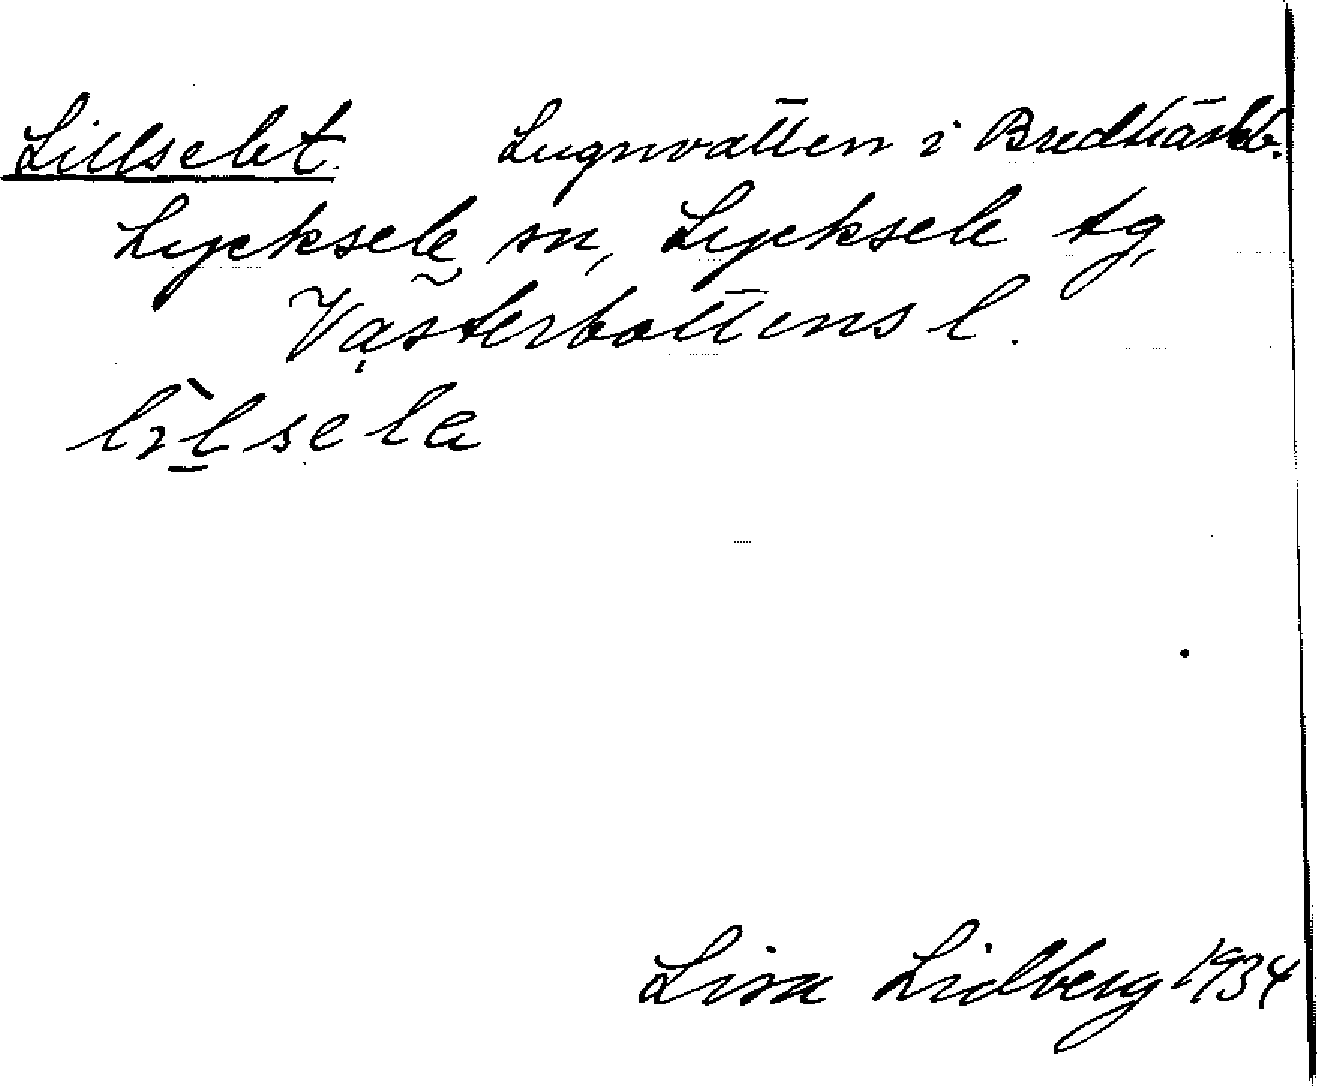 Lillselet Lugnvatten i Bredträskb.
Lycksele sn, Lycksele tg,
Västerbottens l.
lilsela
Lisa Lidberg 1934